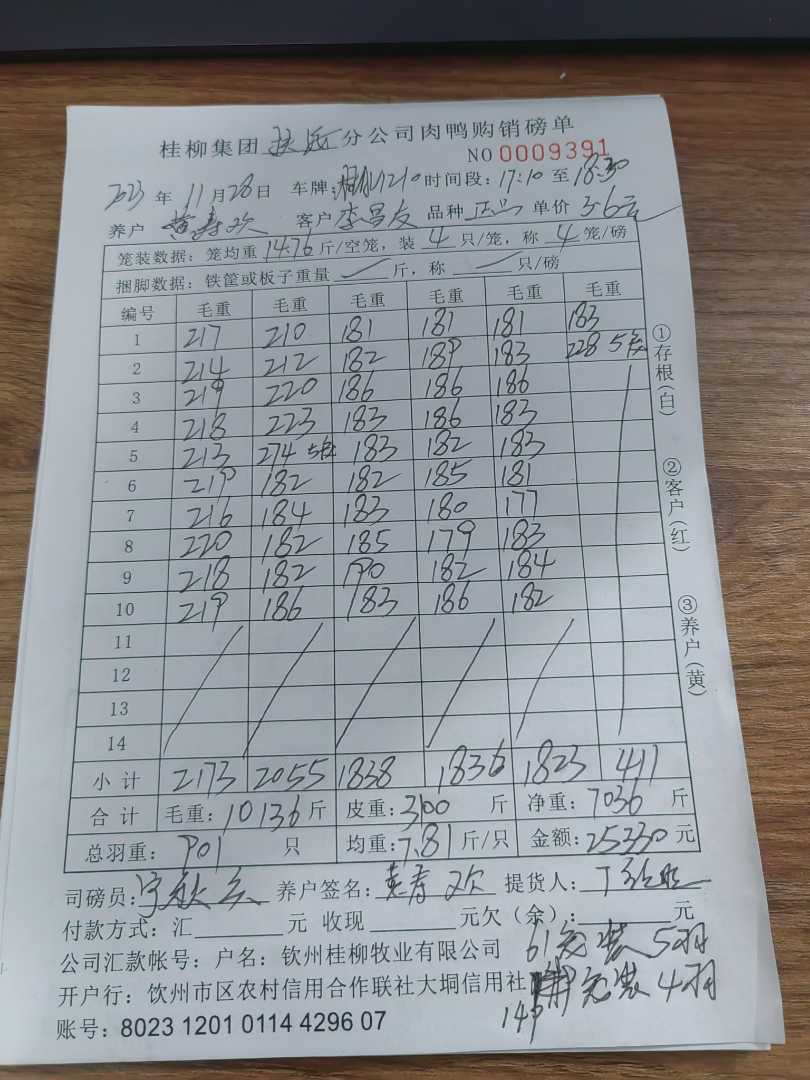 桂柳集团 分公司肉鸭购销磅单
NO 0009391
2023 年 11 月 28 日 车牌: 1210 时间段: 17:10 至 18:30
养户 黄寿欢 客户 李昌友 品种 正品 单价 3.6元
笼装数据: 笼均重 14.76 斤/空笼, 装 4 只/笼, 称 4 笼/磅
捆脚数据: 铁筐或板子重量 斤, 称 只/磅
编号 毛重 毛重 毛重 毛重 毛重 毛重
1 217 210 181 181 181 183
2 214 212 182 189 183 228 5笼
3 219 220 186 186 186
4 218 223 183 186 183
5 213 274 5笼 183 182 183
6 219 182 182 185 181
7 216 184 183 180 177
8 220 182 185 179 183
9 218 182 190 182 184
10 219 186 183 186 182
11
12
13
14
小计 2173 2055 1838 1836 1823 411
合计 毛重: 10136 斤 皮重: 3100 斤 净重: 7036 斤
总羽重: 901 只 均重: 7.81 斤/只 金额: 25330 元
①存根(白)
②客户(红)
③养户(黄)
司磅员: 养户签名: 黄寿欢 提货人:
付款方式: 汇 元 收现 元欠(余): 元
公司汇款帐号: 户名: 钦州桂柳牧业有限公司 61笼装5羽
开户行: 饮州市区农村信用合作联社大垌信用社 149笼装4羽
账号: 8023 1201 0114 4296 07